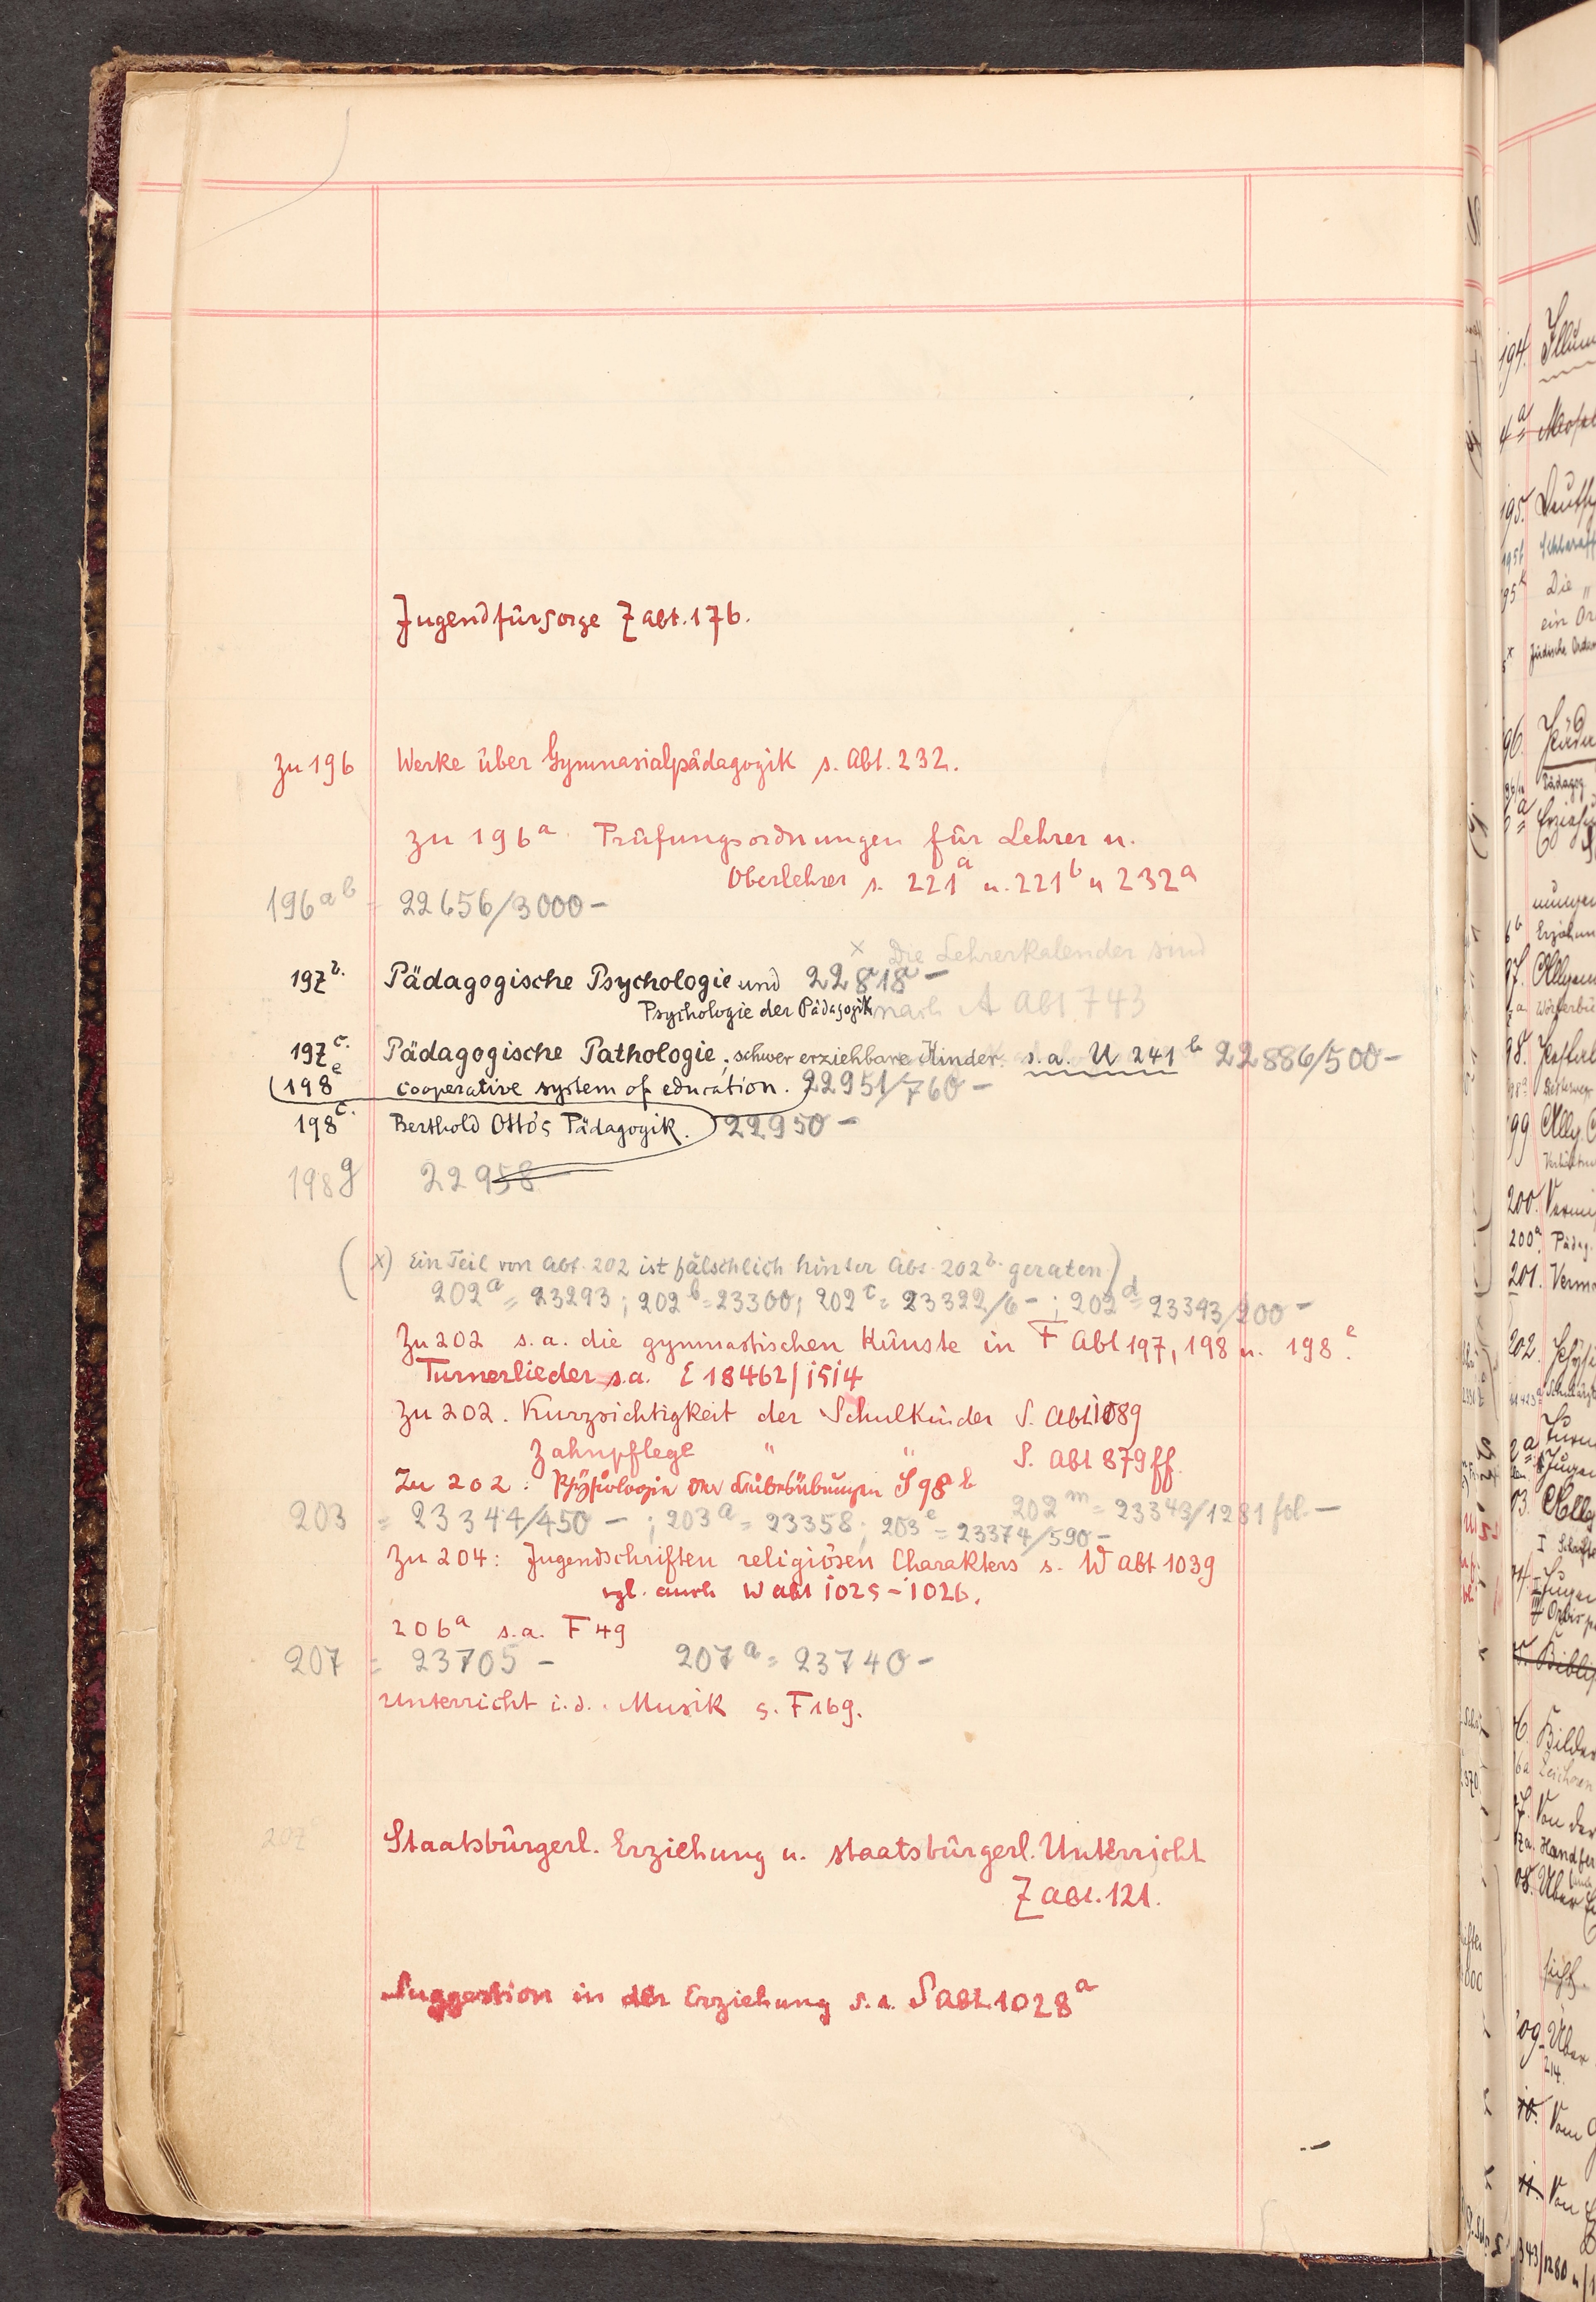 Jugendfürsorge Z abt. 176.
zu 196 Werke über Gymnasialpädagogik s. Abt. 232.
zu 196a Prüfungsordnungen für Lehrer u.
Oberlehrer s. 221a u. 221b u 232a
196ab 22656/3000-
x Die Lehrerkalender sind
197b. Pädagogische Psychologie und 22818a-
Psychologie der Pädagogik nach A Abt 743
197c. Pädagogische Pathologie, schwer erziehbare Kinder. s.a. U 241b 22886/500-
(198e cooperative system of education. 22951/760-
198c. Berthold Otto's Pädagogik. 22950-
198g 22958-
(x) Ein Teil von Abt. 202 ist fälschlich hinter Abt. 202b. geraten)
202a = 23293; 202b = 23300; 202c = 23322/6-; 202d = 23343/200-
Zu 202 s.a. die gymnastischen Künste in F Abt 197, 198 u. 198e.
Turnerlieder s.a. E 18462/1514
Zu 202. Kurzsichtigkeit der Schulkinder S. Abt 1089
Zahnpflege " " S. Abt 879 ff.
Zu 202: Physiologie der Leibesübungen S 98b
202m = 23343/1281 fol.-
203 = 23344/450-; 203a = 23358; 203e = 23374/590-
Zu 204: Jugendschriften religiösen Charakters s. W Abt 1039
vgl. auch W abt 1025-1026.
206a s.a. F 49
207 = 23705- 207a = 23740-
Unterricht i.d. Musik s. F 169.
207
Staatsbürgerl. Erziehung u. staatsbürgerl. Unterricht
Z abt. 121.
Suggestion in der Erziehung s.a. S abt. 1028a